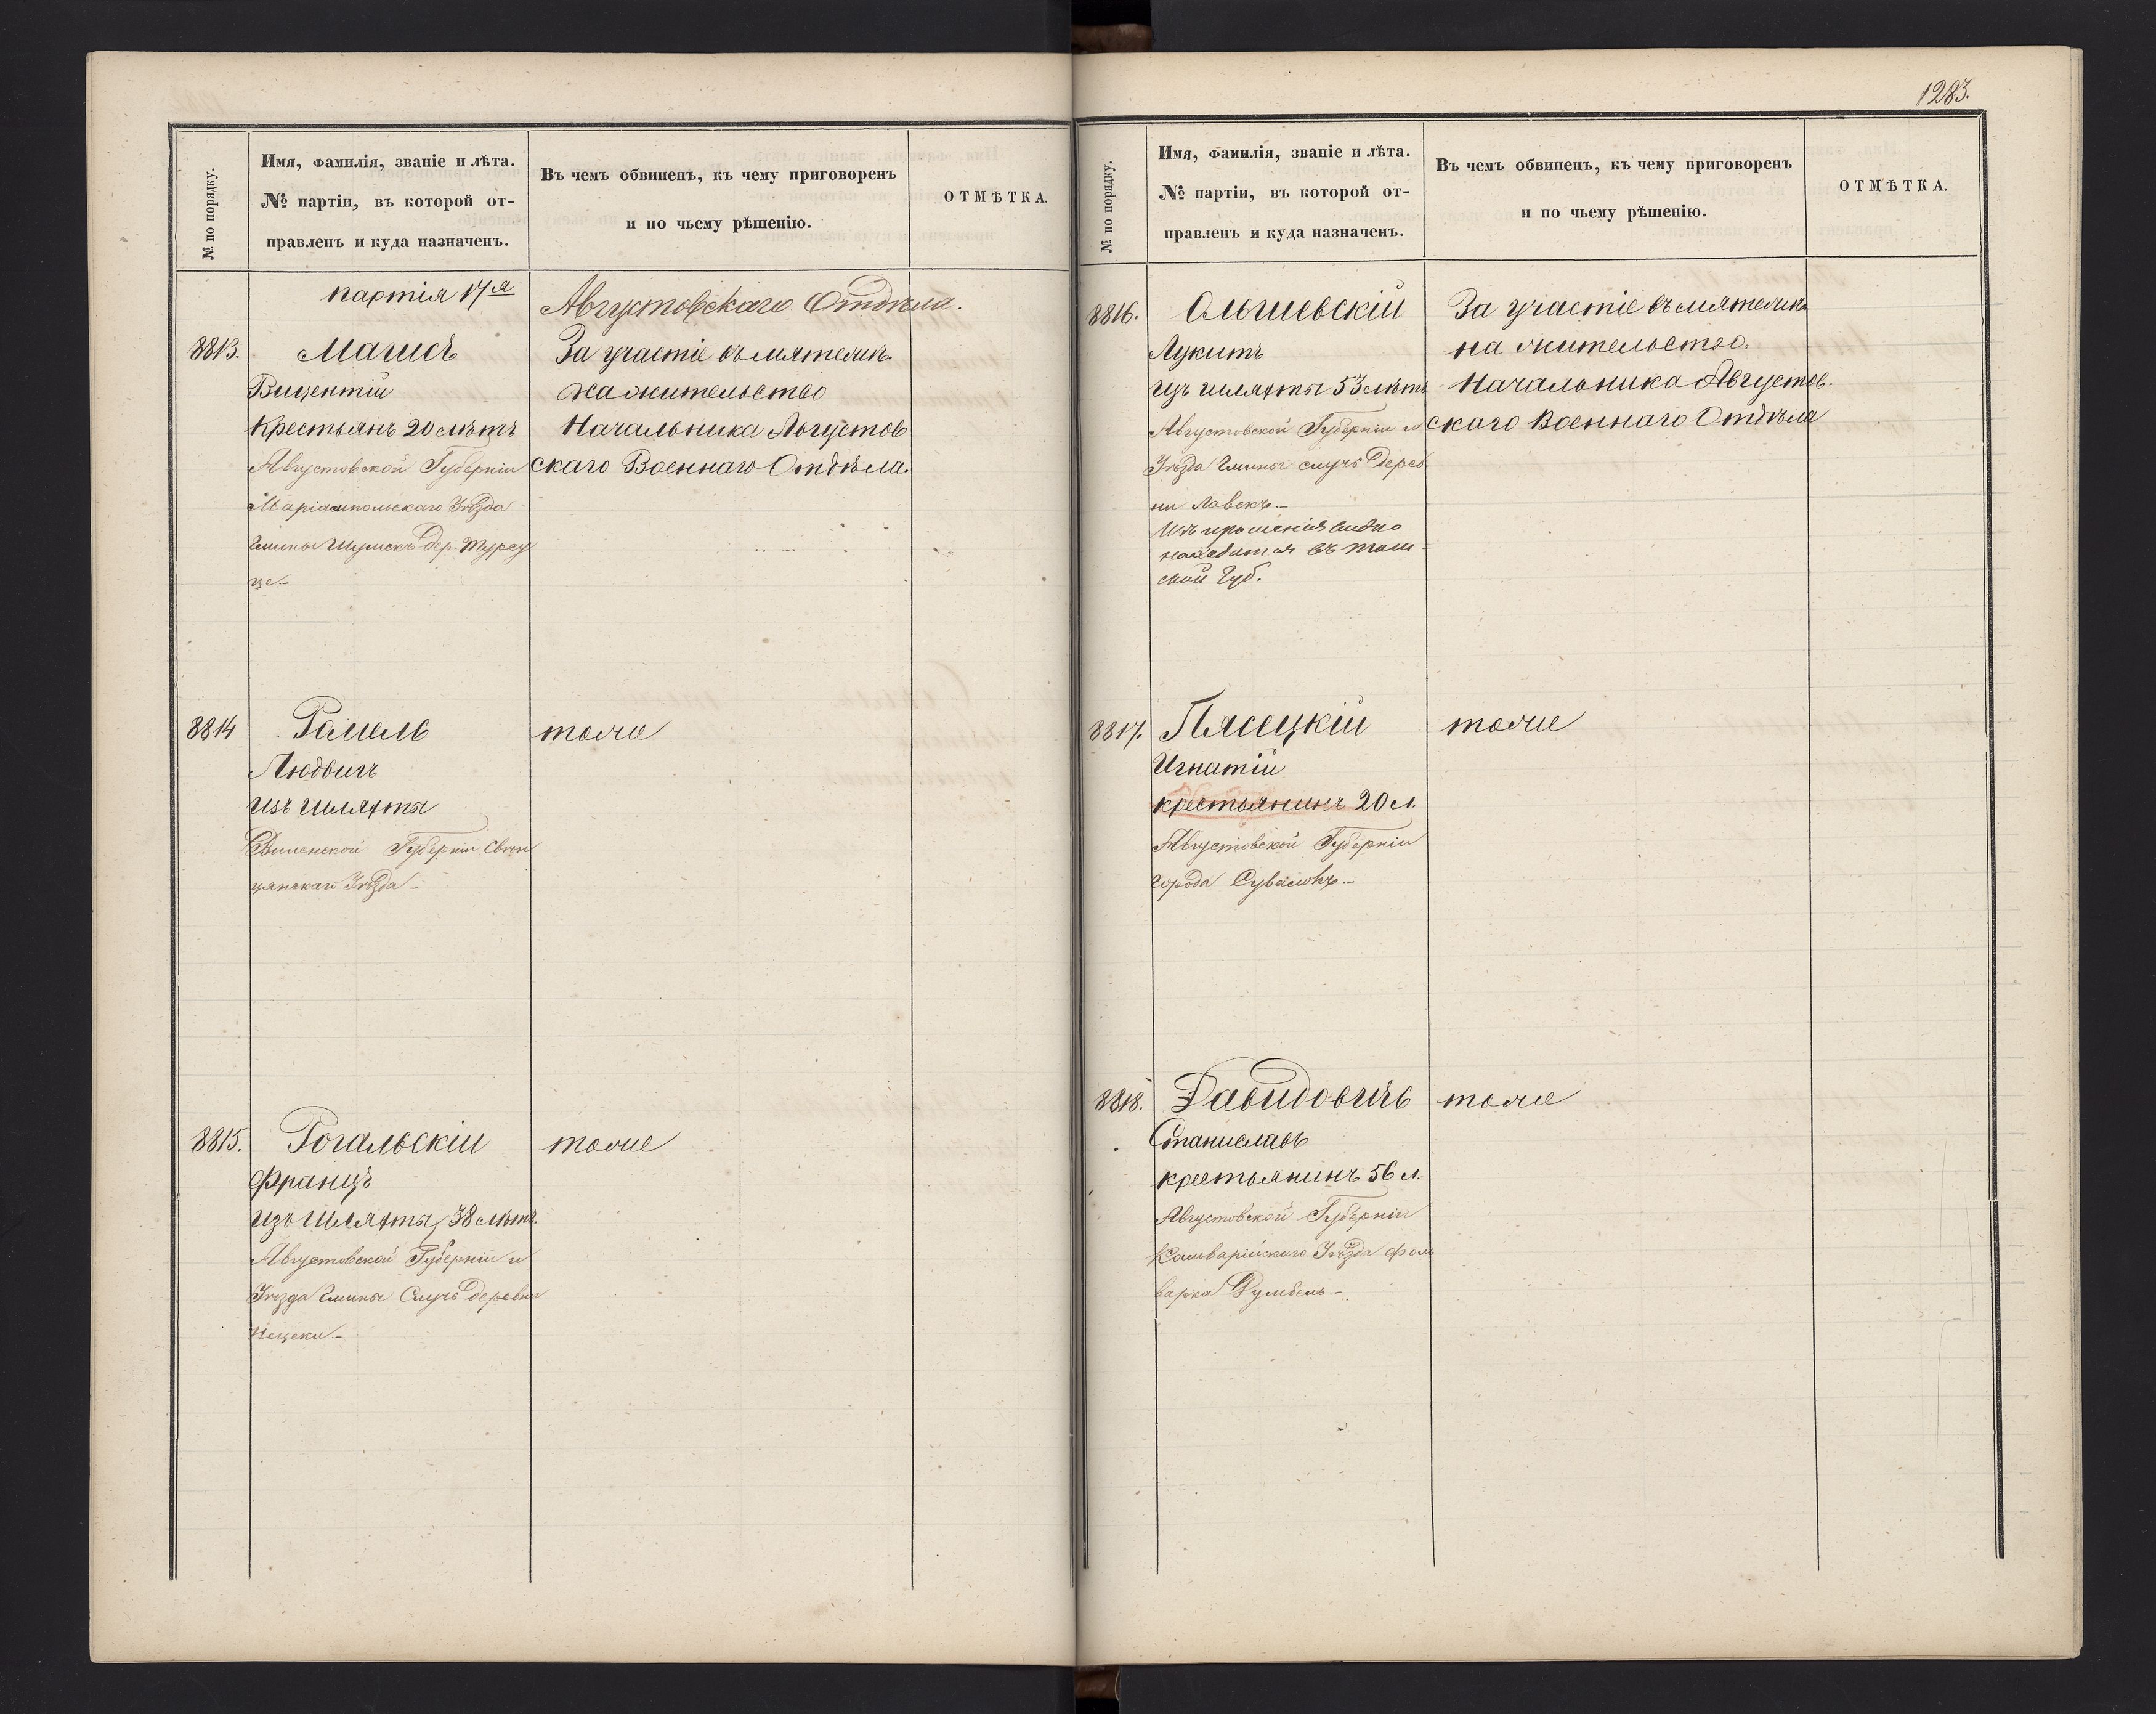 № по порядку.
Имя, фамилія, званіе и лѣта.
№ партіи, въ которой от-
правленъ и куда назначенъ.
Въ чемъ обвиненъ, къ чему приговоренъ
и по чьему рѣшенію.
ОТМѢТКА.
партія 17я
Августовскаго Отдѣла.
8813.
Матисъ
Вицентій
Крестьянъ 20 лѣтъ
Августовской Губерніи
Маріампольскаго Уѣзда
Гмины Шумскъ дер.
За участіе въ мятежѣ.
на жительство
Начальника Августов
скаго Военнаго Отдѣла.
8814
Рамель
Людвигъ
Изъ Шляхты
Виленской Губерніи Свен
цянскаго Уѣзда -
тоже
8815.
Рогальскій
Францъ
Изъ Шляхты, 38 лѣтъ.
Августовской Губерніи и
Уѣзда Гмины Случъ деревни
тоже
1283.
№ по порядку.
Имя, фамилія, званіе и лѣта.
№ партіи, въ которой от-
правленъ и куда назначенъ.
Въ чемъ обвиненъ, къ чему приговоренъ
и по чьему рѣшенію.
ОТМѢТКА.
8816.
Ольшевскій
Лукитъ
Изъ шляхты 53 лѣтъ
Августовской Губерніи и
Уѣзда Гмины Случъ Дерев
ни Лавскъ. -
Изъ прошенія видно
находится въ Том-
ской Губ.
За участіе въ мятежѣ
на жительство.
Начальника Августов-
скаго Военнаго Отдѣла
8817.
Пясецкій
Игнатій
крестьянинъ 20 л.
Августовской Губерніи
города Сувалокъ. -
тоже
8818.
Давидовичъ
Станиславъ
крестьянинъ 56 л.
Августовской Губерніи
Кальварійскаго Уѣзда Фоль
варка Румбель. -
тоже